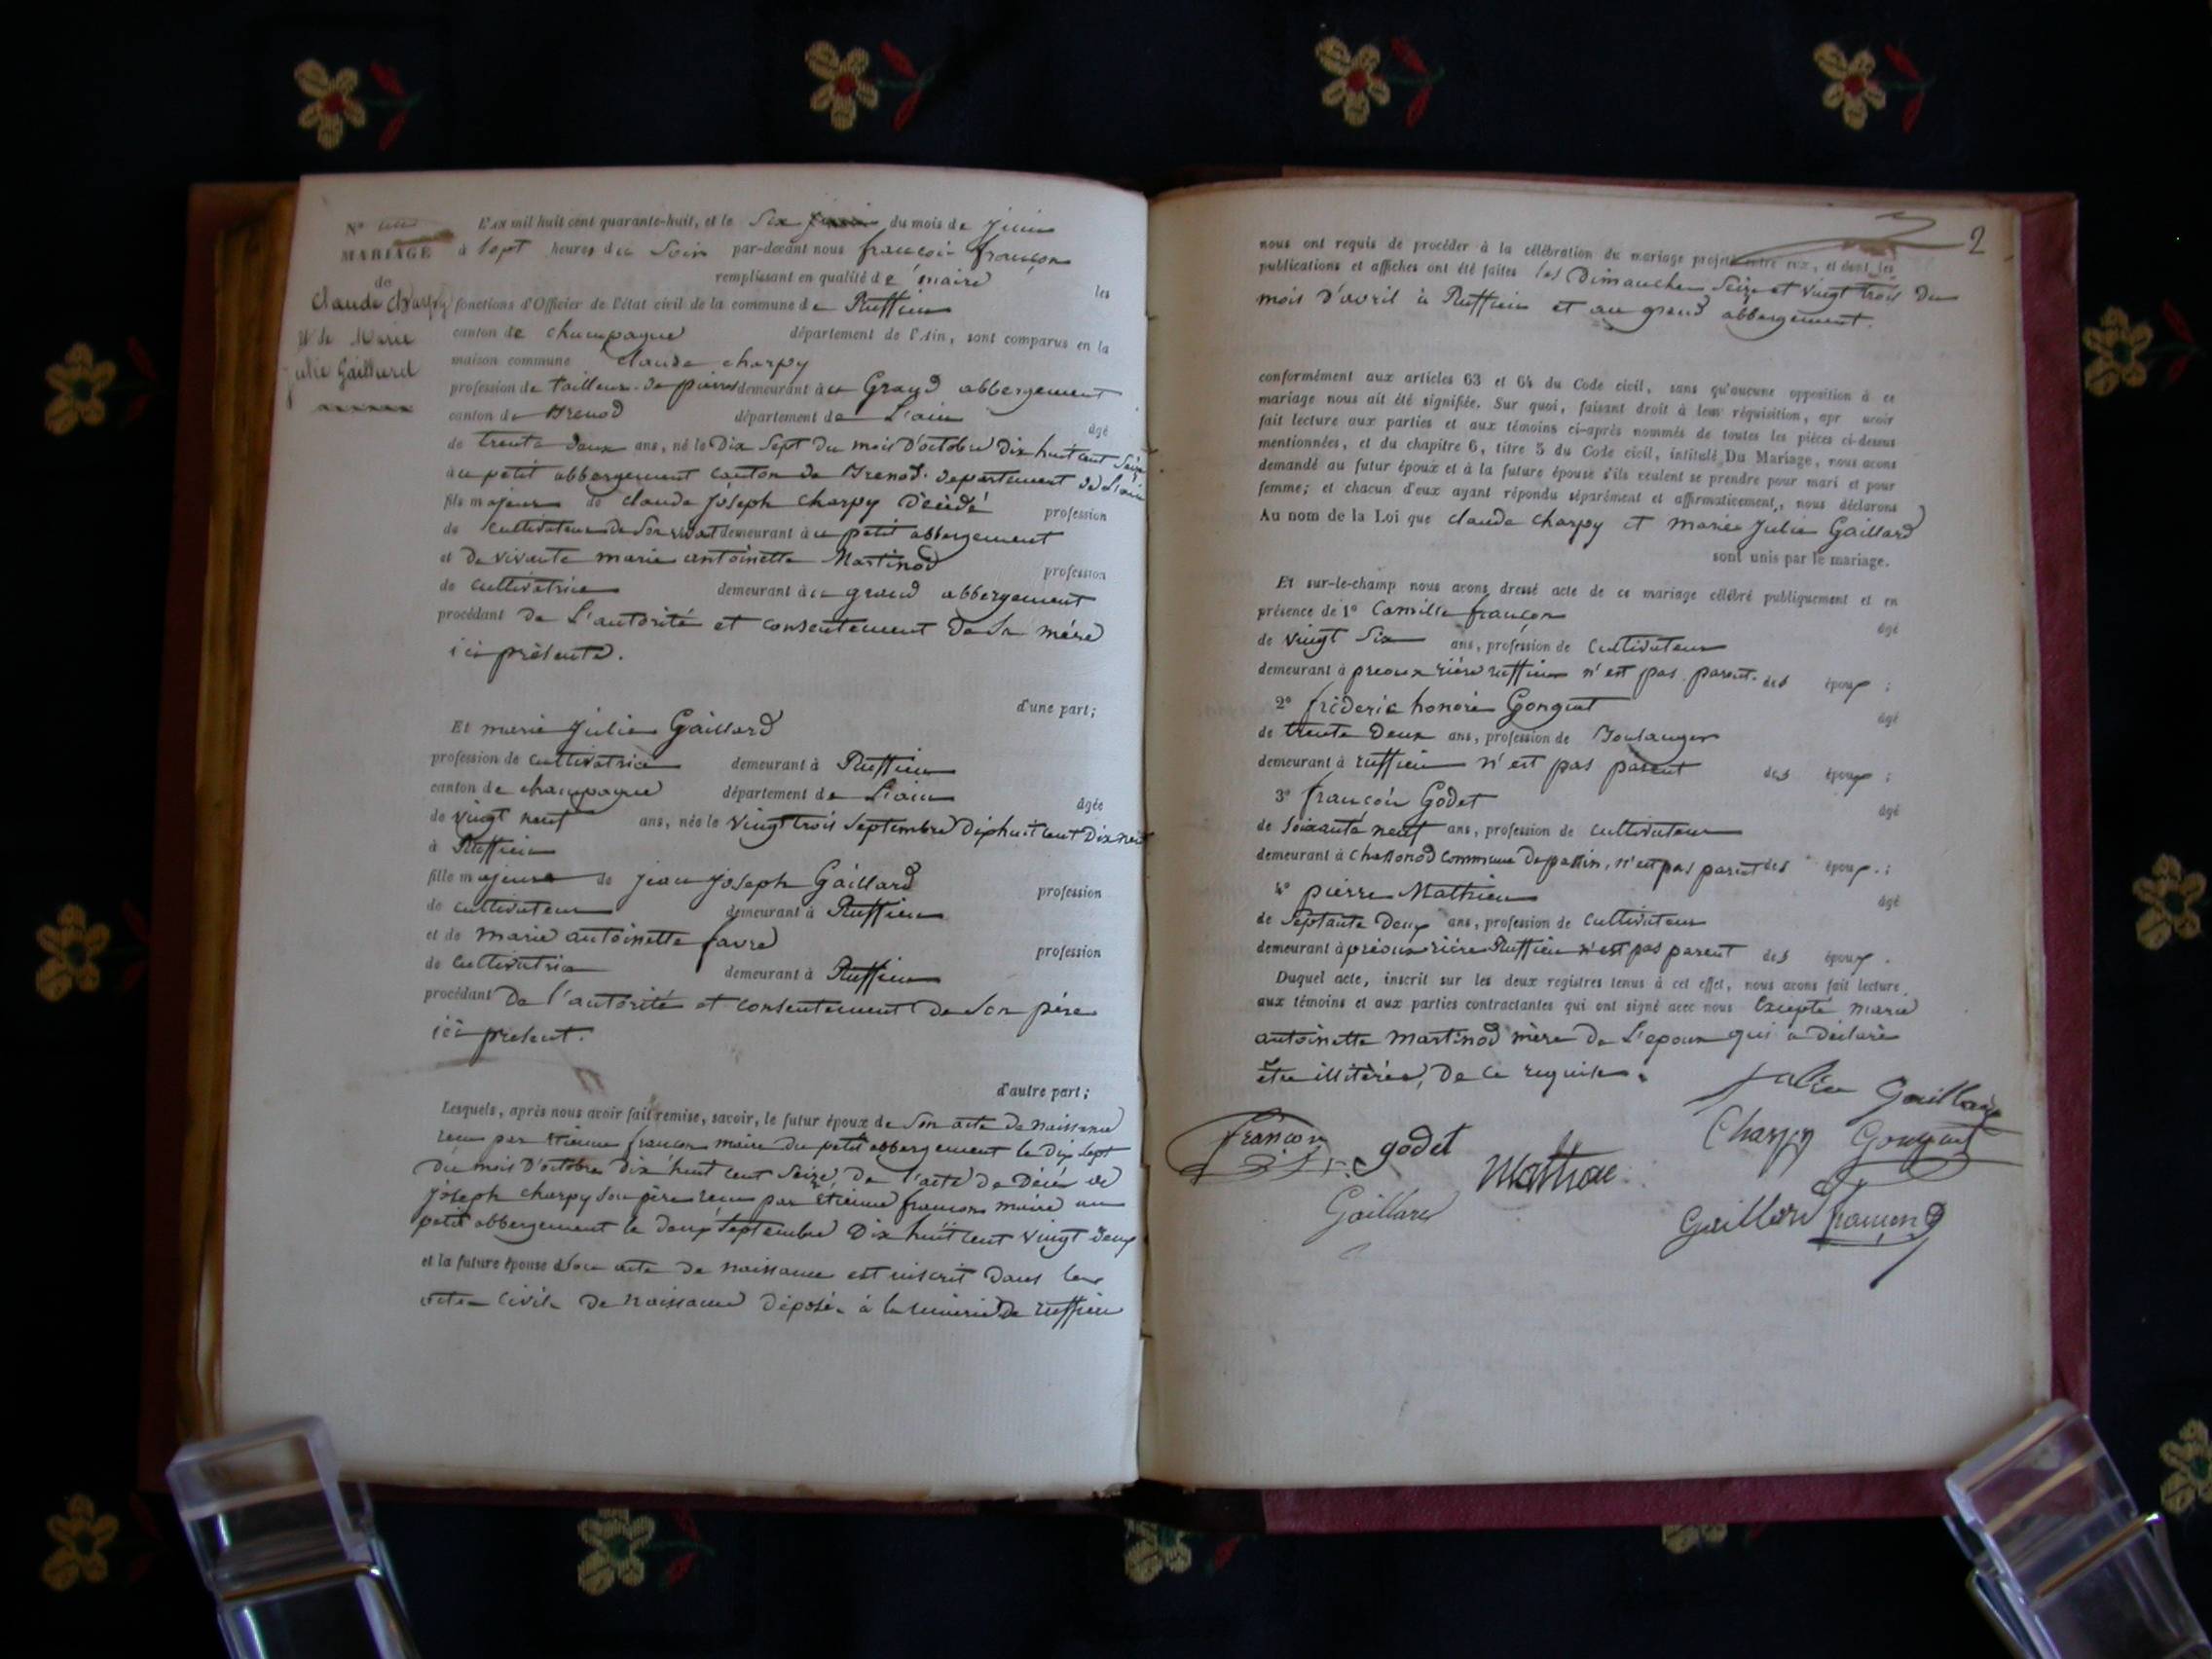 N° un
MARIAGE
de
Claude Charpy
et de Marie
julie Gaillard
L'AN mil huit cent quarante-huit, et le Six du mois de juin
à Sept heures du Soir par-devant nous françois françon
maire remplissant en qualité de les
fonctions d'Officier de l'état civil de la commune de Ruffieu
canton de champagne département de l'Ain, sont comparus en la
maison commune claude charpy
profession de tailleur de pierres demeurant àu Grand abbergement
canton de Brenod département de L'ain âgé
de trente deux ans, né le Dix Sept du mois D'octobre Dix huit cent Seize
au petit abbergement canton de Brenod. departement de L'ain
fils majeur de claude joseph charpy Décédé profession
de cultivateur de Son vivant demeurant àu petit abbergement
et de vivante marie antoinette Martinod profession
de cultivatrice demeurant àu grand abbergement
procédant de L'autorité et consentement de Sa mére
ici présente.
d'une part;
Et marie Julie Gaillard
profession de cultivatrice demeurant à Ruffieu
canton de champagne département de L'ain âgée
de vingt neuf ans, née le vingt trois Septembre Dix huit cent Dix neuf
à Ruffieu
fille majeure de jean joseph Gaillard profession
de cultivateur demeurant à Ruffieu
et de marie antoinette favre profession
de cultivatrice demeurant à Ruffieu
procédant De l'autorité et consentement De Son pére
ici présent.
d'autre part;
Lesquels, après nous avoir fait remise, savoir, le futur époux de Son acte De naissance
recu par étienne françon maire du petit abbergement le Dix Sept
Du mois D'octobre Dix huit cent Seize, De l'acte de Décés de
joseph charpy Son pére recu par étienne françon maire au
petit abbergement le Deux Septembre Dix huit cent vingt Deux
et la future épouse Son acte de naissance est inscrit Dans les
actes civils De naissance déposés à la mairie De ruffieu
2
nous ont requis de procéder à la célébration du mariage projeté entre eux, et dont les
publications et affiches ont été faites les Dimanches Seize et vingt trois Du
mois D'avril à Ruffieu et au grand abbergement.
conformément aux articles 63 et 64 du Code civil, sans qu'aucune opposition à ce
mariage nous ait été signifiée. Sur quoi, faisant droit à leur réquisition, apr avoir
fait lecture aux parties et aux témoins ci-après nommés de toutes les pièces ci-dessus
mentionnées, et du chapitre 6, titre 5 du Code civil, intitulé Du Mariage, nous avons
demandé au futur époux et à la future épouse s'ils veulent se prendre pour mari et pour
femme; et chacun d'eux ayant répondu séparément et affirmativement, nous déclarons
Au nom de la Loi que claude charpy et marie Julie Gaillard
sont unis par le mariage.
Et sur-le-champ nous avons dressé acte de ce mariage célébré publiquement et en
présence de 1° Camille françon âgé
de vingt Six ans, profession de cultivateur
demeurant à préoux riére ruffieu n'est pas parent des époux;
2° frideric honoré Gonguet âgé
de trente Deux ans, profession de Boulanger
demeurant à ruffieu n'est pas parent des époux;
3° françois Godet âgé
de Soixante neuf ans, profession de cultivateur
demeurant à chassonod commune De passin, n'est pas parent des époux;
4° pierre Mathieu âgé
de Septante Deux ans, profession de cultivateur
demeurant à préoux riére Ruffieu n'est pas parent des époux.
Duquel acte, inscrit sur les deux registres tenus à cet effet, nous avons fait lecture
aux témoins et aux parties contractantes qui ont signé avec nous Excepté marie
antoinette Martinod mère de L'epoux qui a déclaré
être illitérée, De ce requise.
Julie Gaillard
françon godet Charpy Gonguet
Gaillard Gaillard françon